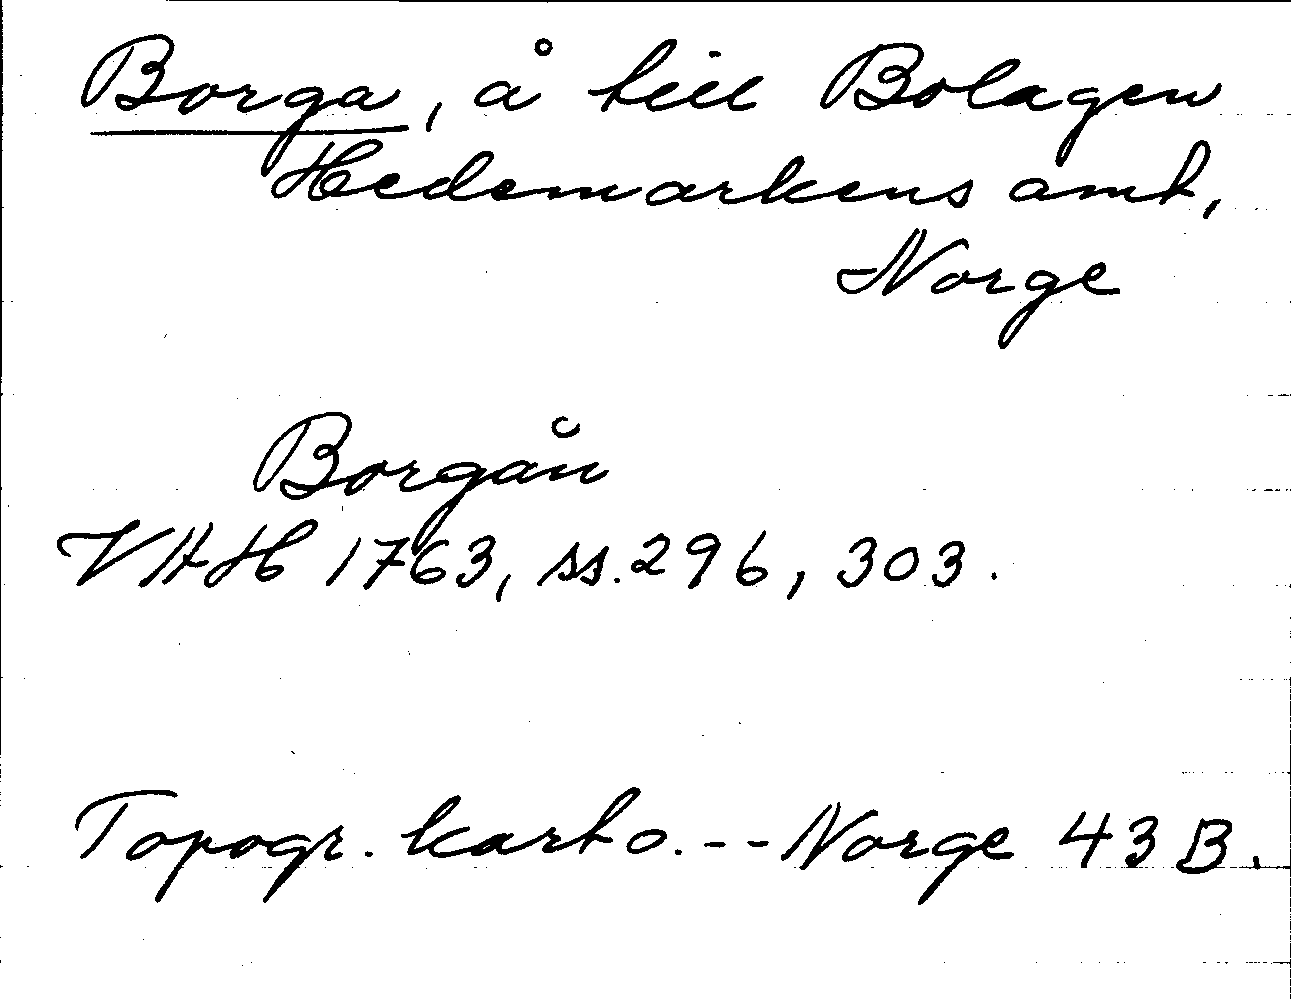 Borga, å till Bolagen
Hedemarkens amt,
Norge
Borgån
VHH 1763, ss. 296, 303.
Topogr. karto. -- Norge 43 B.